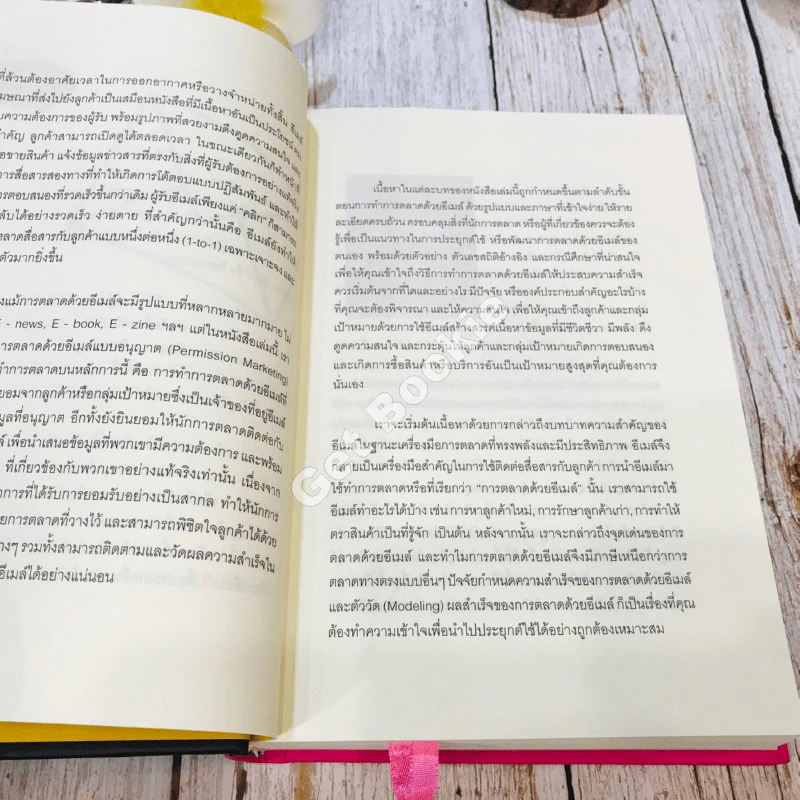 ที่ล้วนต้องอาศัยเวลาในการออกอากาศหรือวางจำหน่ายทั้งสิ้น อีเมล์
ษณาที่ส่งไปยังลูกค้าเป็นเสมือนหนังสือที่มีเนื้อหาอันเป็นประโยชน์
ความต้องการของผู้รับ พร้อมรูปภาพที่สวยงามดึงดูดความสนใจ และ
ำคัญ ลูกค้าสามารถเปิดดูได้ตลอดเวลา ในขณะเดียวกันก็ทำหน้าที่
อขายสินค้า แจ้งข้อมูลข่าวสารที่ตรงกับสิ่งที่ผู้รับต้องการอย่างแท้จริง
การสื่อสารสองทางที่ทำให้เกิดการโต้ตอบแบบปฏิสัมพันธ์ และทำให้
ตอบสนองที่รวดเร็วขึ้นกว่าเดิม ผู้รับอีเมล์เพียงแค่ "คลิก" ก็สามารถ
ลับได้อย่างรวดเร็ว ง่ายดาย ที่สำคัญกว่านั้นคือ อีเมล์ยังทำให้
ตลาดสื่อสารกับลูกค้าแบบหนึ่งต่อหนึ่ง (1-to-1) เฉพาะเจาะจง และ
ตัวมากยิ่งขึ้น
งแม้การตลาดด้วยอีเมล์จะมีรูปแบบที่หลากหลายมากมาย ไม่
E - news, E - book, E - zine ฯลฯ แต่ในหนังสือเล่มนี้ เรา
การตลาดด้วยอีเมล์แบบอนุญาต (Permission Marketing)
ทำการตลาดบนหลักการนี้ คือ การทำการตลาดด้วยอีเมล์ที่
ยอมจากลูกค้าหรือกลุ่มเป้าหมายซึ่งเป็นเจ้าของที่อยู่อีเมล์
มูลที่อนุญาต อีกทั้งยังยินยอมให้นักการตลาดติดต่อกับ
ล์ เพื่อนำเสนอข้อมูลที่พวกเขามีความต้องการ และพร้อม
ที่เกี่ยวข้องกับพวกเขาอย่างแท้จริงเท่านั้น เนื่องจาก
การที่ได้รับการยอมรับอย่างเป็นสากล ทำให้นักการ
ยการตลาดที่วางไว้ และสามารถพิชิตใจลูกค้าได้ด้วย
างๆ รวมทั้งสามารถติดตามและวัดผลความสำเร็จใน
อีเมล์ได้อย่างแน่นอน
เนื้อหาในแต่ละบทของหนังสือเล่มนี้ถูกกำหนดขึ้นตามลำดับขั้น
ตอนการทำการตลาดด้วยอีเมล์ ด้วยรูปแบบและภาษาที่เข้าใจง่าย ให้ราย
ละเอียดครบถ้วน ครอบคลุมสิ่งที่นักการตลาด หรือผู้ที่เกี่ยวข้องควรจะต้อง
รู้เพื่อเป็นแนวทางในการประยุกต์ใช้ หรือพัฒนาการตลาดด้วยอีเมล์ของ
ตนเอง พร้อมด้วยตัวอย่าง ตัวเลขสถิติอ้างอิง และกรณีศึกษาที่น่าสนใจ
เพื่อให้คุณเข้าใจถึงวิธีการทำการตลาดด้วยอีเมล์ให้ประสบความสำเร็จ
ควรเริ่มต้นจากที่ใดและอย่างไร มีปัจจัย หรือองค์ประกอบสำคัญอะไรบ้าง
ที่คุณจะต้องพิจารณา และให้ความสนใจ เพื่อให้คุณเข้าถึงลูกค้าและกลุ่ม
เป้าหมายด้วยการใช้อีเมล์สร้างสรรค์เนื้อหาข้อมูลที่มีชีวิตชีวา มีพลัง ดึง
ดูดความสนใจ และกระตุ้นให้ลูกค้าและกลุ่มเป้าหมายเกิดการตอบสนอง
และเกิดการซื้อสินค้าหรือบริการอันเป็นเป้าหมายสูงสุดที่คุณต้องการ
นั่นเอง
เราจะเริ่มต้นเนื้อหาด้วยการกล่าวถึงบทบาทความสำคัญของ
อีเมล์ในฐานะเครื่องมือการตลาดที่ทรงพลังและมีประสิทธิภาพ อีเมล์จึง
กลายเป็นเครื่องมือสำคัญในการใช้ติดต่อสื่อสารกับลูกค้า การนำอีเมล์มา
ใช้ทำการตลาดหรือที่เรียกว่า "การตลาดด้วยอีเมล์" นั้น เราสามารถใช้
อีเมล์ทำอะไรได้บ้าง เช่น การหาลูกค้าใหม่, การรักษาลูกค้าเก่า, การทำให้
ตราสินค้าเป็นที่รู้จัก เป็นต้น หลังจากนั้น เราจะกล่าวถึงจุดเด่นของการ
ตลาดด้วยอีเมล์ และทำไมการตลาดด้วยอีเมล์จึงมีภาษีเหนือกว่าการ
ตลาดทางตรงแบบอื่นๆ ปัจจัยกำหนดความสำเร็จของการตลาดด้วยอีเมล์
และตัววัด (Modeling) ผลสำเร็จของการตลาดด้วยอีเมล์ ก็เป็นเรื่องที่คุณ
ต้องทำความเข้าใจเพื่อนำไปประยุกต์ใช้ได้อย่างถูกต้องเหมาะสม
Get Bookie